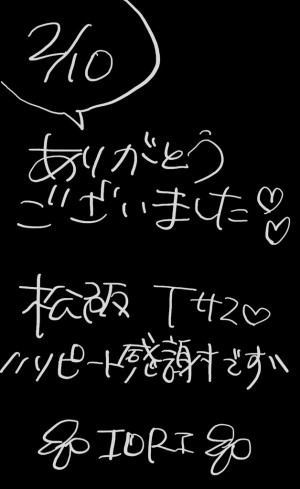 2/10
ありがとう
ございました♡♡
松阪 T42♡
リピート感謝です
IORI